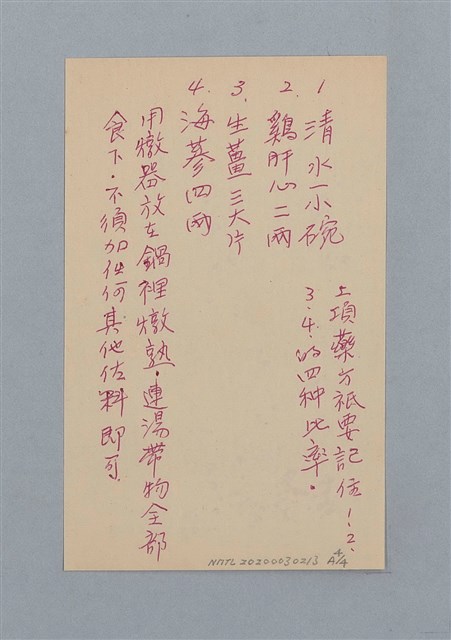 1 清水一小碗
2. 鷄肝心二兩
3. 生薑三大片
4. 海蔘四兩
用燉器放在鍋裡燉熟，連湯帶物全部
食下。不須加任何其他佐料即可。
上項藥方祇要記住1.2.
3.4.的四种比率。
NMTL20200030213 4/A4